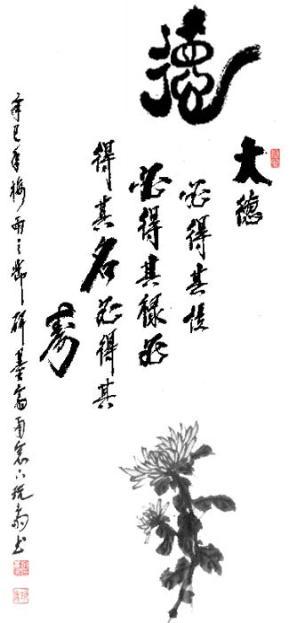 德
大德
必得其位
必得其禄必
得其名必得其
寿
辛巳年梅雨之节研墨